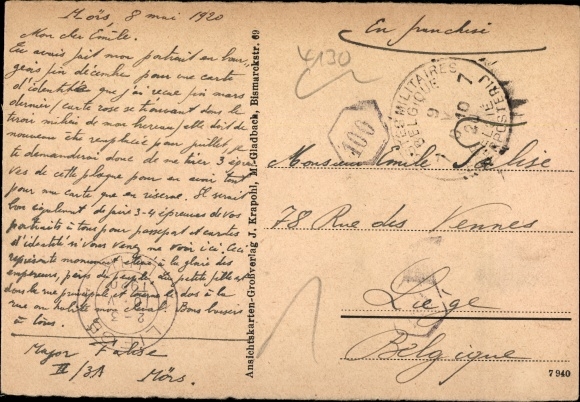 Mörs, 8 mai 1920
Mon cher Emile.
Tu avais fait mon portrait en bour-
geois fin décembre pour une carte
d'identité que j'ai reçue fin mars
dernier/carte rose se trouvant dans le
tiroir milieu de mon bureau/elle doit de
nouveau être remplacée pour juillet, je
te demanderai donc de me tirer 3 épreu-
ves de cette plaque pour en avoir tout
pour ma carte que en réserve. Il serait
bon également de faire 3-4 épreuves de vos
portraits à tous pour passeport et cartes
d'identité si vous venez me voir ici. Ceci
représente monument élevé à la gloire des
empereurs, père du peuple. Il petite
dans la rue principale et tourne le dos à la
rue où habite mon cheval. Bons baisers
à tous.
Major Falise
III/3A
Mörs.
Ansichtskarten-Großverlag J. Krapohl, M.-Gladbach, Bismarckstr. 69
En franchise
4130
100
POSTES MILITAIRES
BELGIQUE
9
7
10
20
POSTERIJ
Monsieur Emile Falise
78 Rue des Vennes
Liège
Belgique
7940